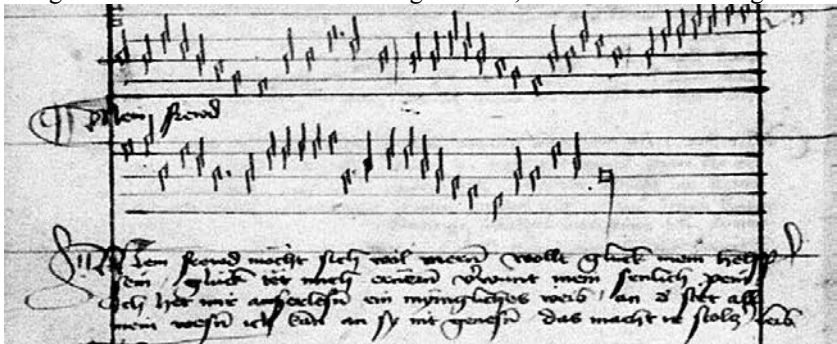 Mein frewd
Mein frewd mocht sich wol mern wollt gluck mein helff
sein / gluck tet mich ernern v'wunt mein senlich pein
Ich het mir auserlesn ein mynigliches weib / an d' stet all
mein wesn ich kan an sy nit genesn das macht ir stolz' leib